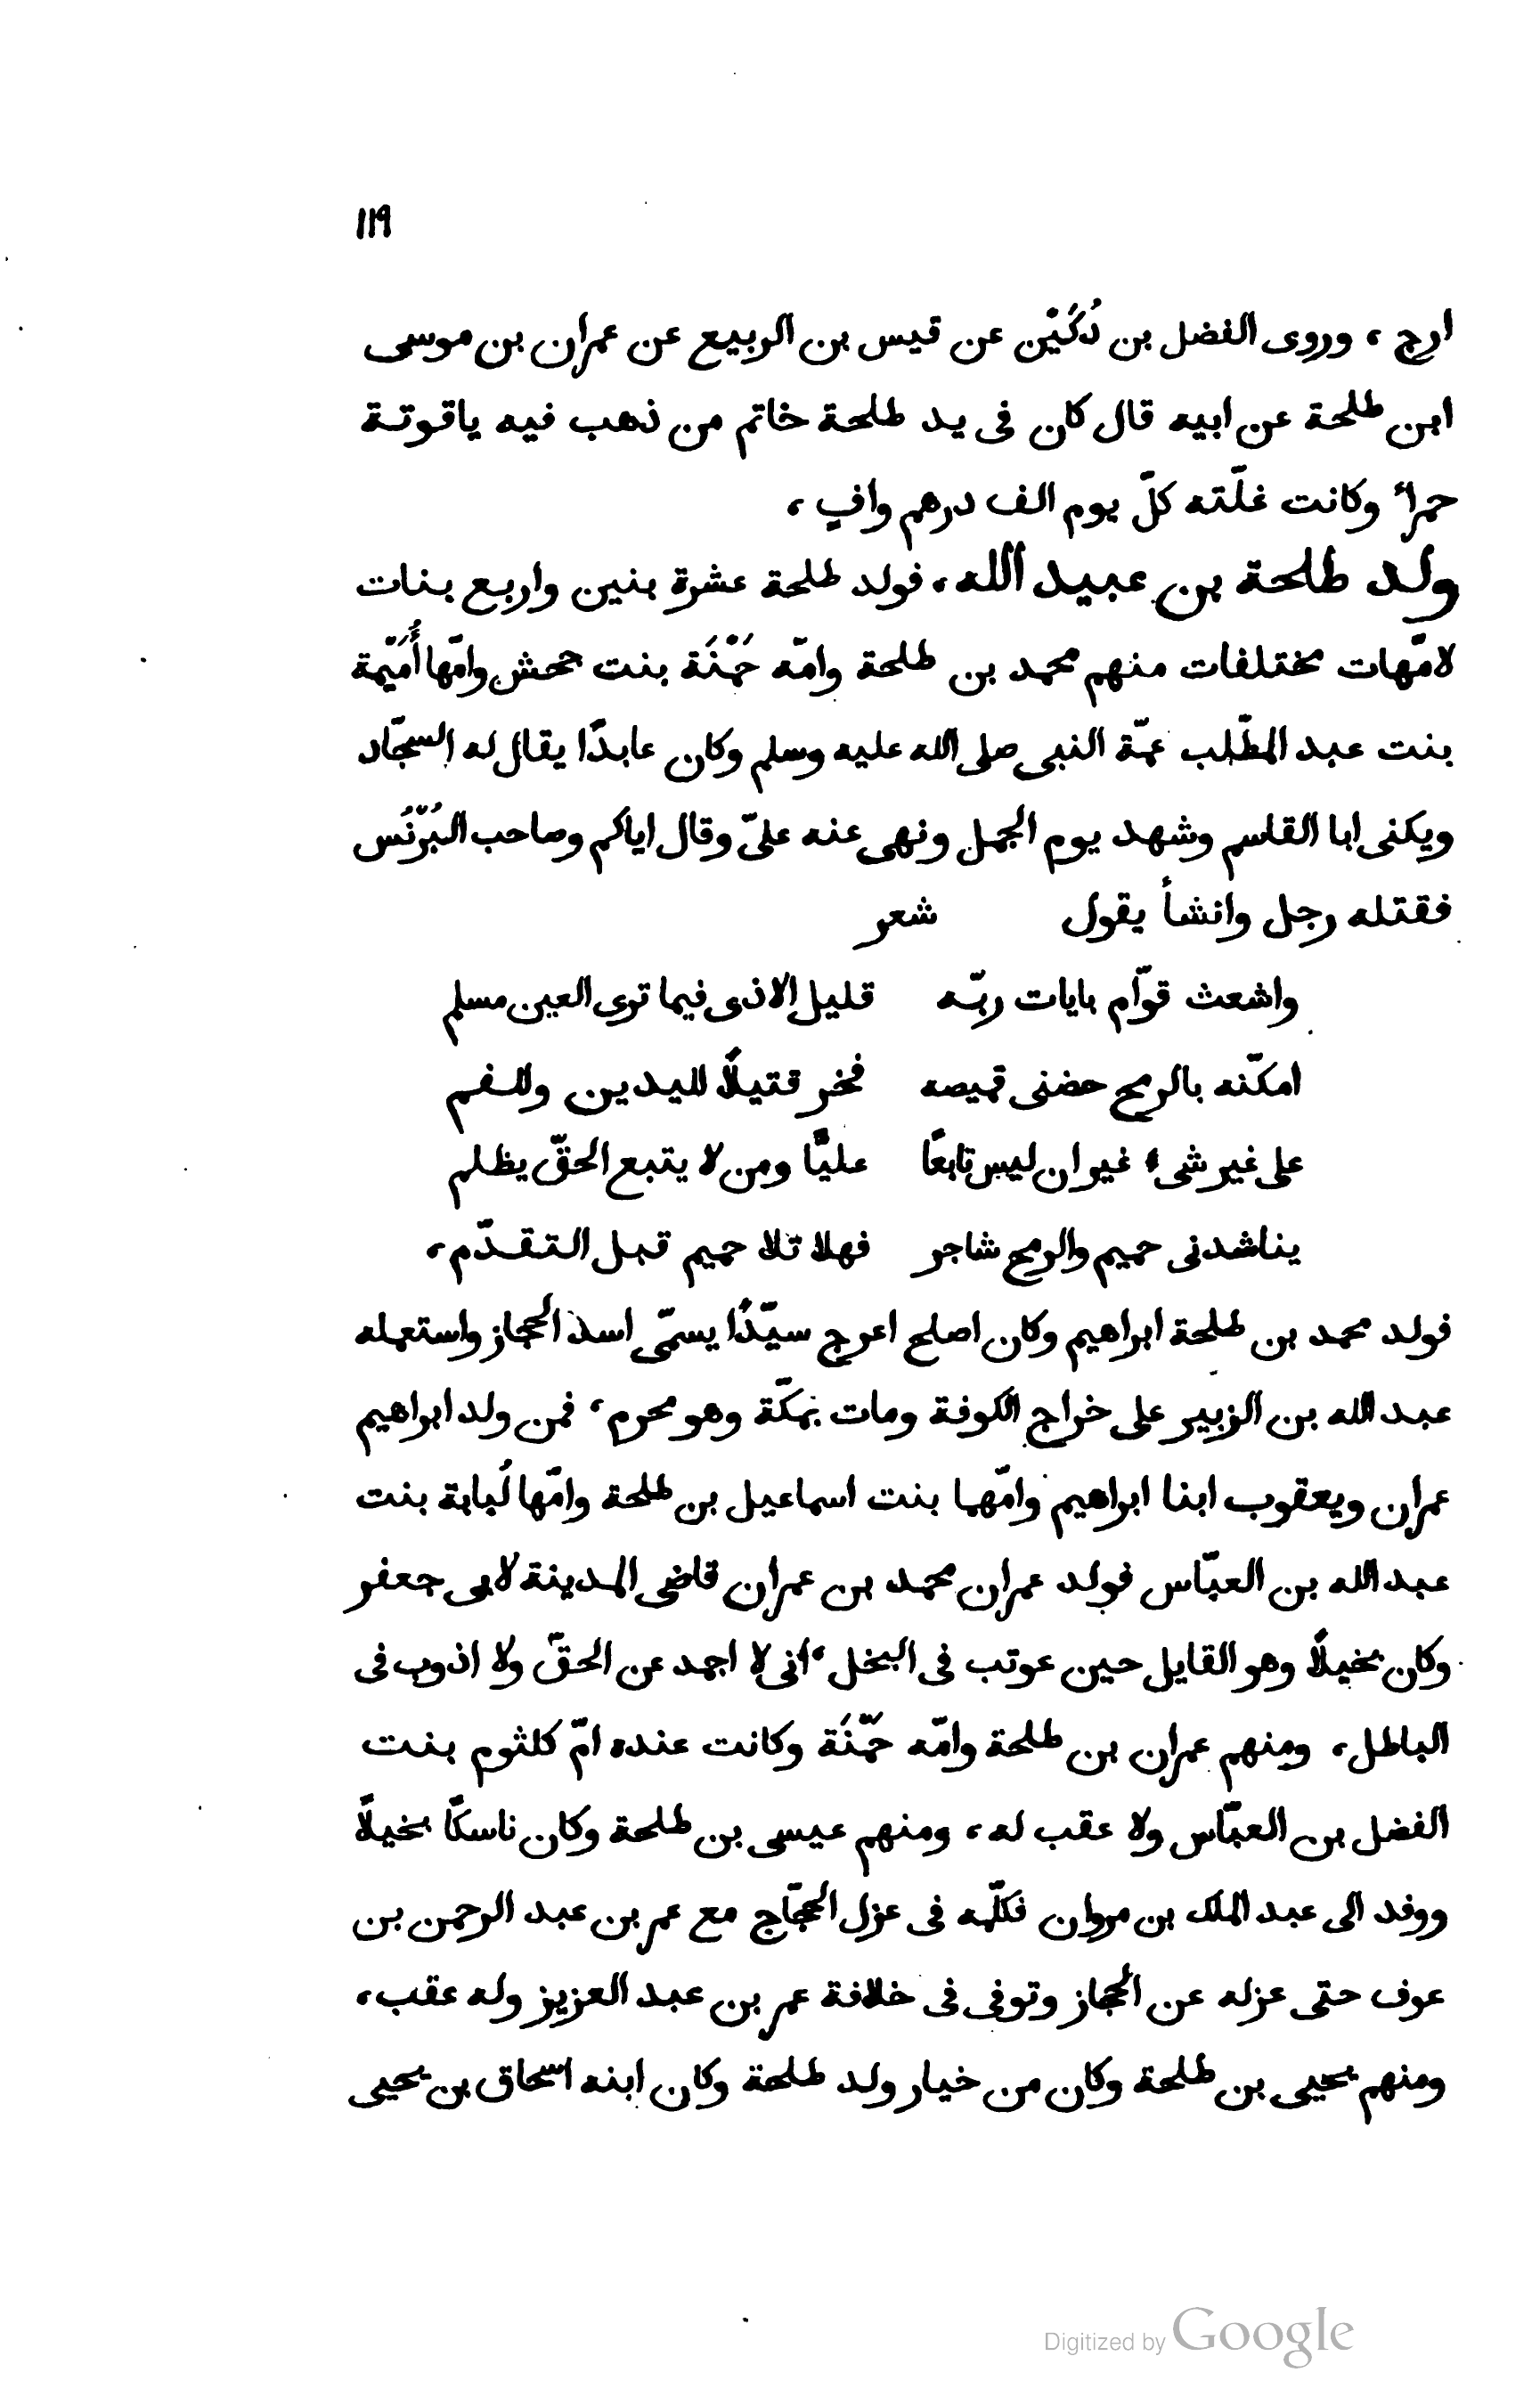 ١١٩
ارج ، وروى الفضل بن دُكَيْن عن قيس بن الربيع عن عمران بن موسى
ابن طلحة عن ابيه قال كان فى يد طلحة خاتم من ذهب فيه ياقوتة
حمراء وكانت غلّته كلّ يوم الف درهم وافٍ ،
ولد طلحة بن عبيد الله، فولد طلحة عشرة بنين واربع بنات
لامّهات مختلفات منهم محمد بن طلحة وامّه حَمْنَة بنت جحش وامّها أُمَيّمة
بنت عبد المطّلب عمّة النبى صلى الله عليه وسلم وكان عابدًا يقال له السجّاد
ويكنى ابا القاسم وشهد يوم الجمل ونهى عنه علىّ وقال اياكم وصاحب البُرْنُس
فقتله رجل وانشأ يقول شعر
واشعث قوّام بايات ربّه قليل الاذى فيما ترى العين مسلم
امكّنه بالرمح حضنى قميصه فخر قتيلًا لليدين وللفم
على غير شىء غير ان ليس تابعًا عليًّا ومن لا يتبع الحقّ يظلم
يناشدنى حميم والرمح شاجر فهلا تلا حميم قبل التقدّم،
فولد محمد بن طلحة ابراهيم وكان اصلح اعرج سيّدًا يسمّى اسد الحجاز واستعمله
عبد الله بن الزبير على خراج الكوفة ومات بمكّة وهو محرم، فمن ولد ابراهيم
عمران ويعقوب ابنا ابراهيم وامّهما بنت اسماعيل بن طلحة وامّها لُبابة بنت
عبد الله بن العبّاس فولد عمران محمد بن عمران قاضى المدينة لابى جعفر
وكان بخيلًا وهو القايل حين عوتب فى البخل، انى لا اجمد عن الحقّ ولا اذوب فى
الباطل، ومنهم عمران بن طلحة وامّه حَمْنَة وكانت عنده امّ كلثوم بنت
الفضل بن العبّاس ولا عقب له، ومنهم عيسى بن طلحة وكان ناسكًا بخيلًا
ووفد الى عبد الملك بن مروان فكلّمه فى عزل الحجّاج مع عمر بن عبد الرحمن بن
عوف حتى عزله عن الحجاز وتوفى فى خلافة عمر بن عبد العزيز وله عقب،
ومنهم يحيى بن طلحة وكان من خيار ولد طلحة وكان ابنه اسحاق بن يحيى
Digitized by Google